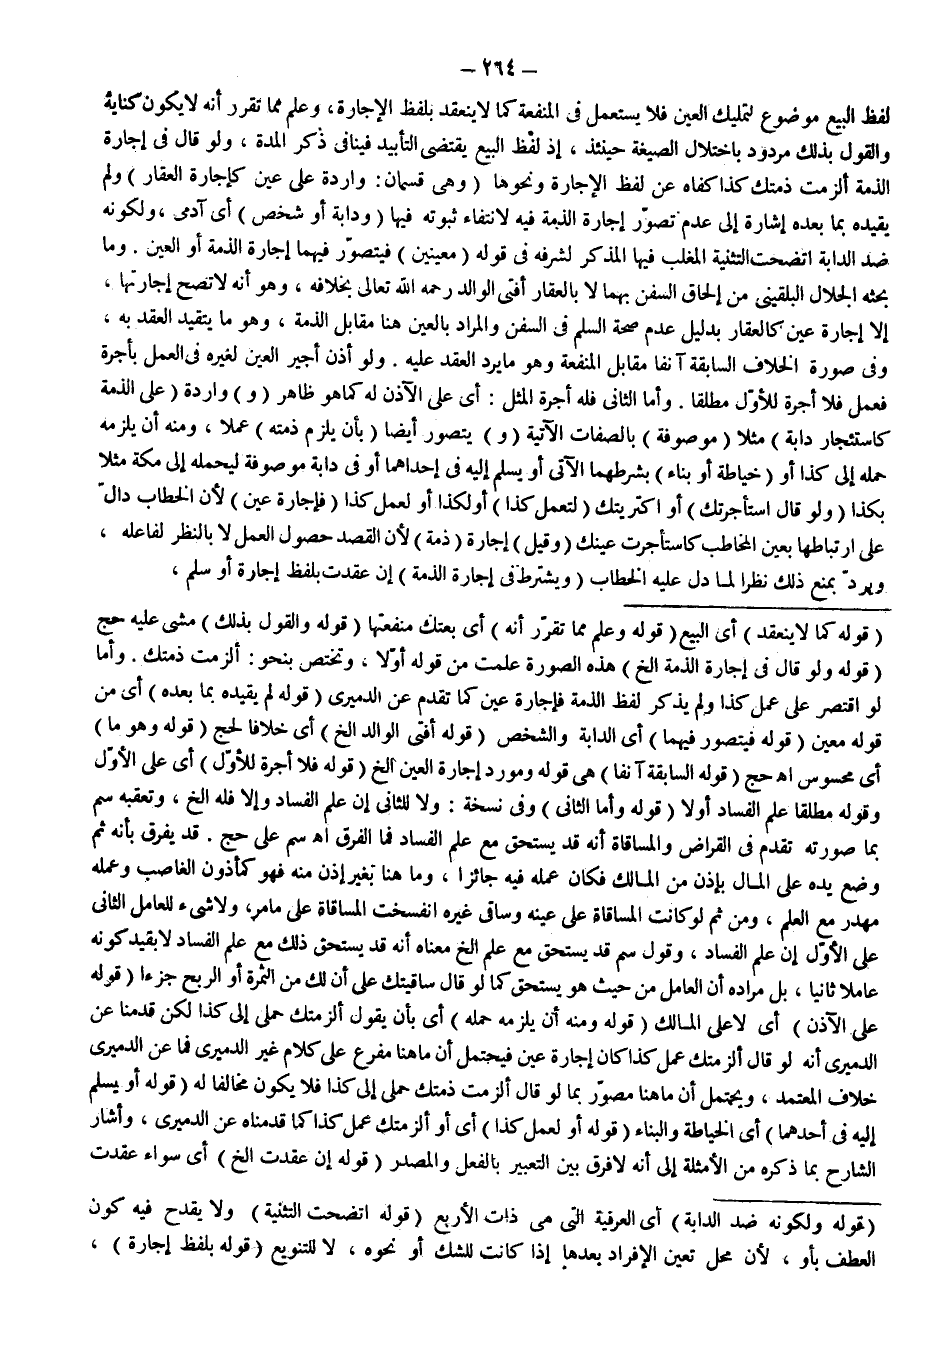 – ٢٦٤ –
لفظ البيع موضوع لتمليك العين فلا يستعمل فى المنفعة كما لاينعقد بلفظ الإجارة، وعلم مما تقرر أنه لايكون كناية
والقول بذلك مردود باختلال الصيغة حينئذ ، إذ لفظ البيع يقتضى التأبيد فينافى ذكر المدة ، ولو قال فى إجارة
الذمة ألزمت ذمتك كذا كفاه عن لفظ الإجارة ونحوها ( وهى قسمان: واردة على عين كإجارة العقار ) ولم
يقيده بما بعده إشارة إلى عدم تصوّر إجارة الذمة فيه لانتفاء ثبوته فيها ( ودابة أو شخص ) أى آدمى ،ولكونه
ضد الدابة اتضحت التثنية المغلب فيها المذكر لشرفه فى قوله ( معينين ) فيتصوّر فيهما إجارة الذمة أو العين . وما
بحثه الجلال البلقينى من إلحاق السفن بهما لا بالعقار أفتى الوالد رحمه الله تعالى بخلافه ، وهو أنه لاتصح إجارتها ،
إلا إجارة عين كالعقار بدليل عدم صحة السلم فى السفن والمراد بالعين هنا مقابل الذمة ، وهو ما يتقيد العقد به ،
وفى صورة الخلاف السابقة آنفا مقابل المنفعة وهو مايرد العقد عليه . ولو أذن أجير العين لغيره فى العمل بأجرة
فعمل فلا أجرة للأوّل مطلقا . وأما الثانى فله أجرة المثل : أى على الآذن له كماهو ظاهر ( و ) واردة ( على الذمة
كاستئجار دابة ) مثلا ( موصوفة ) بالصفات الآتية ( و ) يتصور أيضا ( بأن يلزم ذمته ) عملا ، ومنه أن يلزمه
حمله إلى كذا أو ( خياطة أو بناء ) بشرطهما الآتى أو يسلم إليه فى إحداهما أو فى دابة موصوفة ليحمله إلى مكة مثلا
بكذا ( ولو قال استأجرتك ) أو اكتريتك ( لتعمل كذا ) أولكذا أو لعمل كذا ( فإجارة عين ) لأن الخطاب دالّ
على ارتباطها بعين المخاطب كاستأجرت عينك ( وقيل ) إجارة ( ذمة ) لأن القصد حصول العمل لا بالنظر لفاعله ،
ويردّ بمنع ذلك نظرا لما دل عليه الخطاب ( ويشترط فى إجارة الذمة ) إن عقدت بلفظ إجارة أو سلم ،
( قوله كما لاينعقد ) أى البيع ( قوله وعلم مما تقرّر أنه ) أى بعتك منفعتها ( قوله والقول بذلك ) مشى عليه حج
( قوله ولو قال فى إجارة الذمة الخ ) هذه الصورة علمت من قوله أوّلا ، وتختص بنحو : ألزمت ذمتك . وأما
لو اقتصر على عمل كذا ولم يذكر لفظ الذمة فإجارة عين كما تقدم عن الدميرى ( قوله لم يقيده بما بعده ) أى من
قوله معين ( قوله فيتصور فيهما ) أى الدابة والشخص ( قوله أفتى الوالد الخ ) أى خلافا لحج ( قوله وهو ما )
أى محسوس اه حج ( قوله السابقة آنفا ) هى قوله ومورد إجارة العين الخ ( قوله فلا أجرة للأوّل ) أى على الأوّل
وقوله مطلقا علم الفساد أولا ( قوله وأما الثانى ) وفى نسخة : ولا للثانى إن علم الفساد وإلا فله الخ ، وتعقبه سم
بما صورته تقدم فى القراض والمساقاة أنه قد يستحق مع علم الفساد فما الفرق اه سم على حج . قد يفرق بأنه ثم
وضع يده على المال بإذن من المالك فكان عمله فيه جائزا ، وما هنا بغير إذن منه فهو كمأذون الغاصب وعمله
مهدر مع العلم ، ومن ثم لو كانت المساقاة على عينه وساقى غيره انفسخت المساقاة على مامر، ولاشىء للعامل الثانى
على الأوّل إن علم الفساد ، وقول سم قد يستحق مع علم الخ معناه أنه قد يستحق ذلك مع علم الفساد لابقيد كونه
عاملا ثانيا ، بل مراده أن العامل من حيث هو يستحق كما لو قال ساقيتك على أن لك من الثمرة أو الربح جزءا ( قوله
على الآذن ) أى لاعلى المالك ( قوله ومنه أن يلزمه حمله ) أى بأن يقول ألزمتك حملى إلى كذا لكن قدمنا عن
الدميرى أنه لو قال ألزمتك عمل كذا كان إجارة عين فيحتمل أن ماهنا مفرع على كلام غير الدميرى فما عن الدميرى
خلاف المعتمد ، ويحتمل أن ماهنا مصوّر بما لو قال ألزمت ذمتك حملى إلى كذا فلا يكون مخالفا له ( قوله أو يسلم
إليه فى أحدهما ) أى الخياطة والبناء ( قوله أو لعمل كذا ) أى أو ألزمتك عمل كذا كما قدمناه عن الدميرى ، وأشار
الشارح بما ذكره من الأمثلة إلى أنه لافرق بين التعبير بالفعل والمصدر ( قوله إن عقدت الخ ) أى سواء عقدت
( قوله ولكونه ضد الدابة ) أى العرفية التى هى ذات الأربع ( قوله اتضحت التثنية ) ولا يقدح فيه كون
العطف بأو ، لأن محل تعين الإفراد بعدها إذا كانت للشك أو نحوه ، لا للتنويع ( قوله بلفظ إجارة ) ،